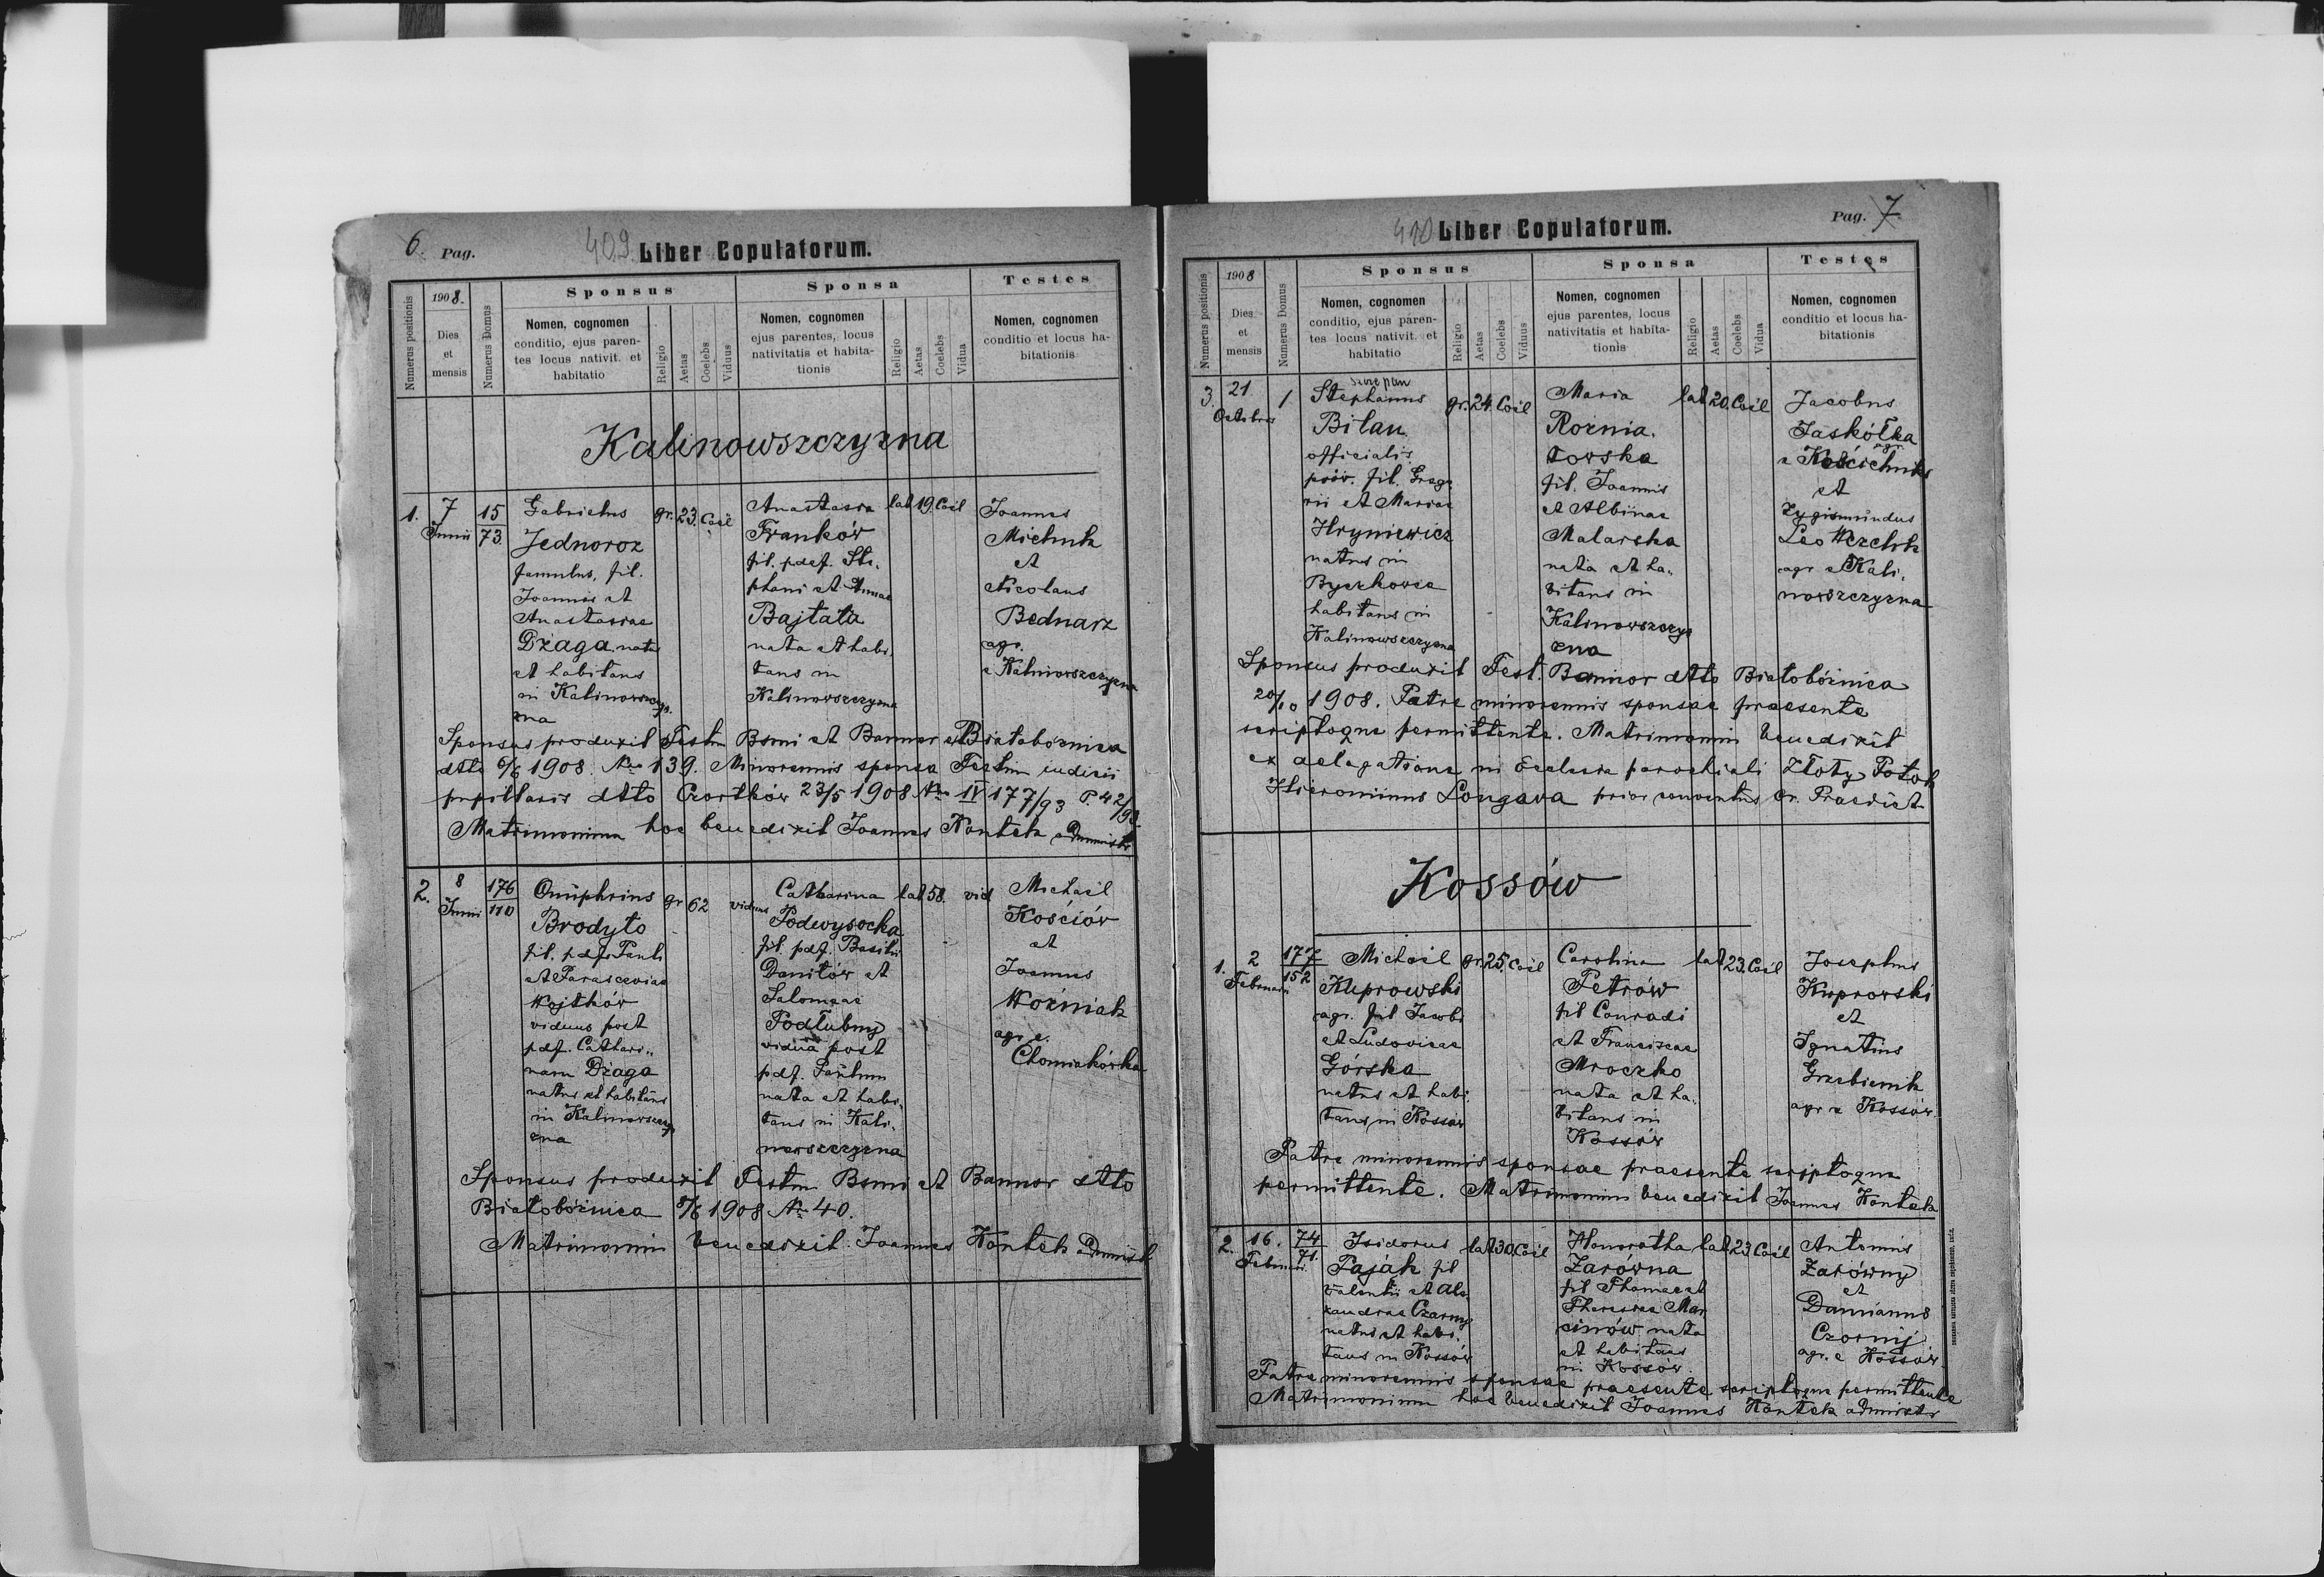 6. Pag.
409. Liber Copulatorum.
Numerus positionis
1908.
Dies
et
mensis
Numerus Domus
Sponsus
Nomen, cognomen
conditio, ejus paren-
tes locus nativit. et
habitatio
Religio
Aetas
Coelebs
Viduus
Sponsa
Nomen, cognomen
ejus parentes, locus
nativitatis et habita-
tionis
Religio
Aetas
Coelebs
Vidua
Testes
Nomen, cognomen
conditio et locus ha-
bitationis
Kalinowszczyzna
1.
7
Junii
15
73.
Gabrielus
Jednoroz
famulus, fil.
Joannis et
Anastasiae
Dżaga natus
et habitans
in Kalinowszczy.
zna
gr. 23. Coel
Anastasia
Franków
fil. pdef. Ste.
phani et Annae
Bajtała
nata et habi.
tans in
Kalinowszczyzna
lat 19. Coel
Joannes
Michuk
et
Nicolaus
Bednarz
agr.
e Kalinowszczyzna
Sponsus produxit Testm Bsmi et Bannor Białobóżnica
dtto 6/6 1908. Nro 139. Minorennis sponsa Testm iudicii
pupillaris dtto Czortków 23/5 1908 Nro IV 177/93 P. 42/93.
Matrimonium hoc benedixit Joannes Kontek administr
2.
8
Junii
176
110
Onuphrius
Brodyło
fil. pdef. Pauli
et Parasceviae
Wojtków
viduus post
pdef. Cathari..
nam Dżaga
natus et habitans
in Kalinowszczy
zna
gr 62 viduus
Catharina
Podwysocka
fil. pdf. Basilii
Daniłów et
Salomeae
Podłubny
vidua post
pdf. Paulum
nata et habi.
tans in Kali.
nowszczyzna
lat 58. vid
Michael
Kościów
et
Joannes
Woźniak
agr e.
Chomiakówka
Sponsus produxit Testm Bsmi et Bannor dtto
Białobóżnica 8/6 1908 Nr 40.
Matrimonium benedixit Joannes Kontek administ
410 Liber Copulatorum.
Pag. 7.
Numerus positionis
1908
Dies
et
mensis
Numerus Domus
Sponsus
Nomen, cognomen
conditio, ejus paren-
tes locus nativit. et
habitatio
Religio
Aetas
Coelebs
Viduus
Sponsa
Nomen, cognomen
ejus parentes, locus
nativitatis et habita-
tionis
Religio
Aetas
Coelebs
Vidua
Testes
Nomen, cognomen
conditio et locus ha-
bitationis
3.
21
Octobris
1
Szczepan
Stephanus
Bilan
officialis
fil. Grego
rii et Mariae
Hryniewicz
natus in
Byczkowce
habitans in
Kalinowszczyzna
gr. 24. Coel
Maria
Rożnia.
towska
fil. Joannis
et Albinae
Malarska
nata et ha.
bitans in
Kalinowszczy
zna
lat 20. Coel
Jacobus
Jaskółka
agr
et
Zygismundus
Leo Wczelik
agr e Kali.
nowszczyzna
Sponsus produxit Test. Bannor dtto Białobóżnica
20/10 1908. Patre minorennis sponsae praesente
scriptoque permittente. Matrimonium benedixit
ex delegatione in Ecclesia parochiali Złoty Potok
Hieronimus Longawa prior conventus Or. Praedict
Kossów
1.
2
Februarii
177
152
Michael
Kuprowski
agr. fil Jacobi
et Ludovicae
Górska
natus et habi.
tans in Kossów
gr. 25. Coel
Carolina
Petrów
fil Conradi
et Franciscae
Mroczko
nata et ha.
bitans in
Kossów
lat 23. Coel
Josephus
Kuprowski
et
Ignatius
Grzebieniak
agr e Kossów.
Patre minorennis sponsae praesente scriptoque
permittente. Matrimonium benedixit Joannes Kontek
2.
16.
Februarii
74
71.
Isidorus
Pająk fil
Valentii et Ale
xandrae Czarny
natus et habi.
tans in Kossów
lat 30. Coel
Honoratha
Zarówna
fil Thomae et
Theresiae Mar
cinów nata
et habitans
in Kossów.
lat 23 Coel
Antonius
Zarówny
et
Damianus
Czornij
agr. e Kossów.
Patre minorennis sponsae praesente scriptoque permittente
Matrimonium hoc benedixit Joannes Kontek administr